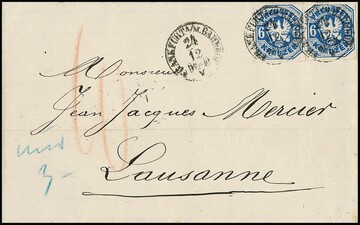 FRANKFURT A/M. BAHNHOF
24
12
PREUSSEN
6 6
KREUZER
PREUSSEN
6 6
KREUZER
Monsieur
Jean Jacques Mercier
Lausanne
3-